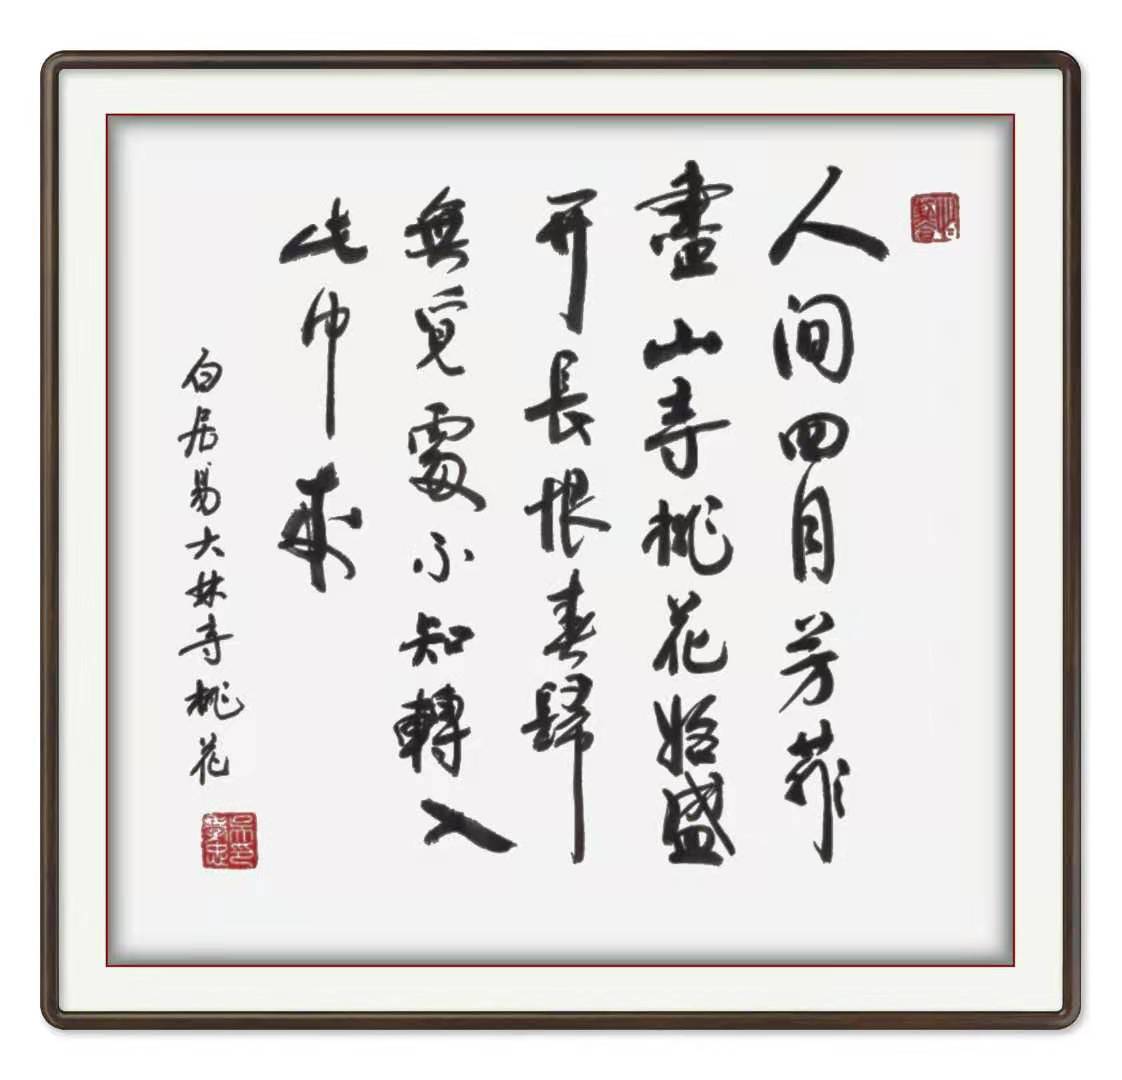 人间四月芳菲
盡山寺桃花始盛
开長恨春歸
無覓處不知轉入
此中来
白居易大林寺桃花